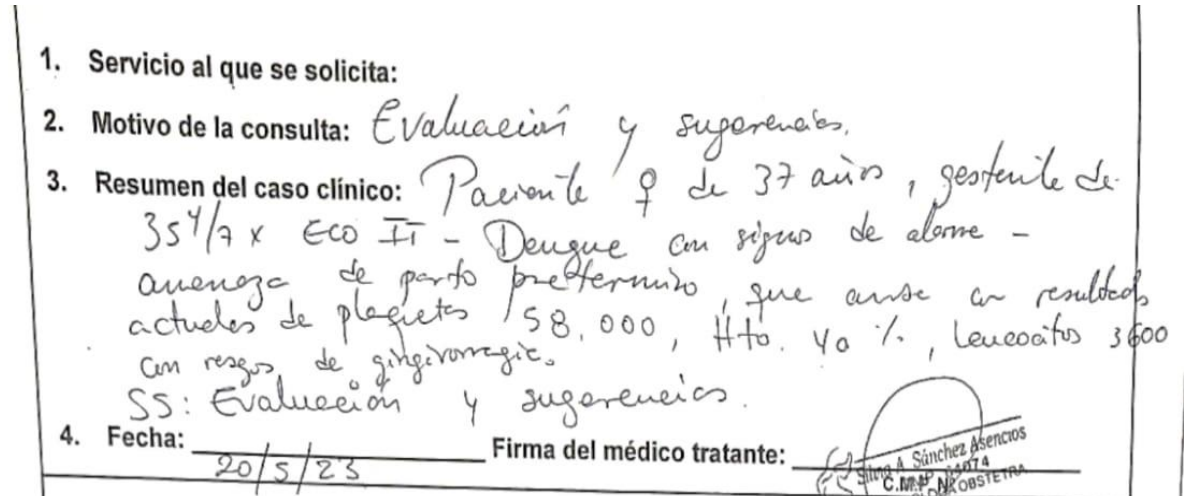 1. Servicio al que se solicita:
2. Motivo de la consulta: Evaluación y sugerencias.
3. Resumen del caso clínico: Paciente ♀ de 37 años, gestante de
35 4/7 x ECO II - Dengue con signos de alarma -
amenaza de parto pretérmino, que cursa con resultados
actuales de plaquetas 58.000, Hto. 40 %, Leucocitos 3600
con rasgos de gingivorragia.
SS: Evaluación y sugerencias.
4. Fecha: 20/5/23 Firma del médico tratante:
A. Sánchez Asencios
C.M.P.
OBSTETRA